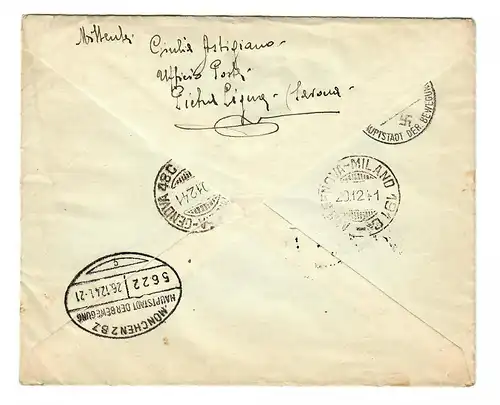 Mittente
Giulia Astigiano
Ufficio Posta
Pietra Ligure (Savona)
HAUPTSTADT DER BEWEGUNG
GENOVA 48C
12 41
GENOVA-MILANO 191
20.12 41
MÜNCHEN 2 BZ
HAUPTSTADT DER BEWEGUNG
26.12.41.-21
5622
c